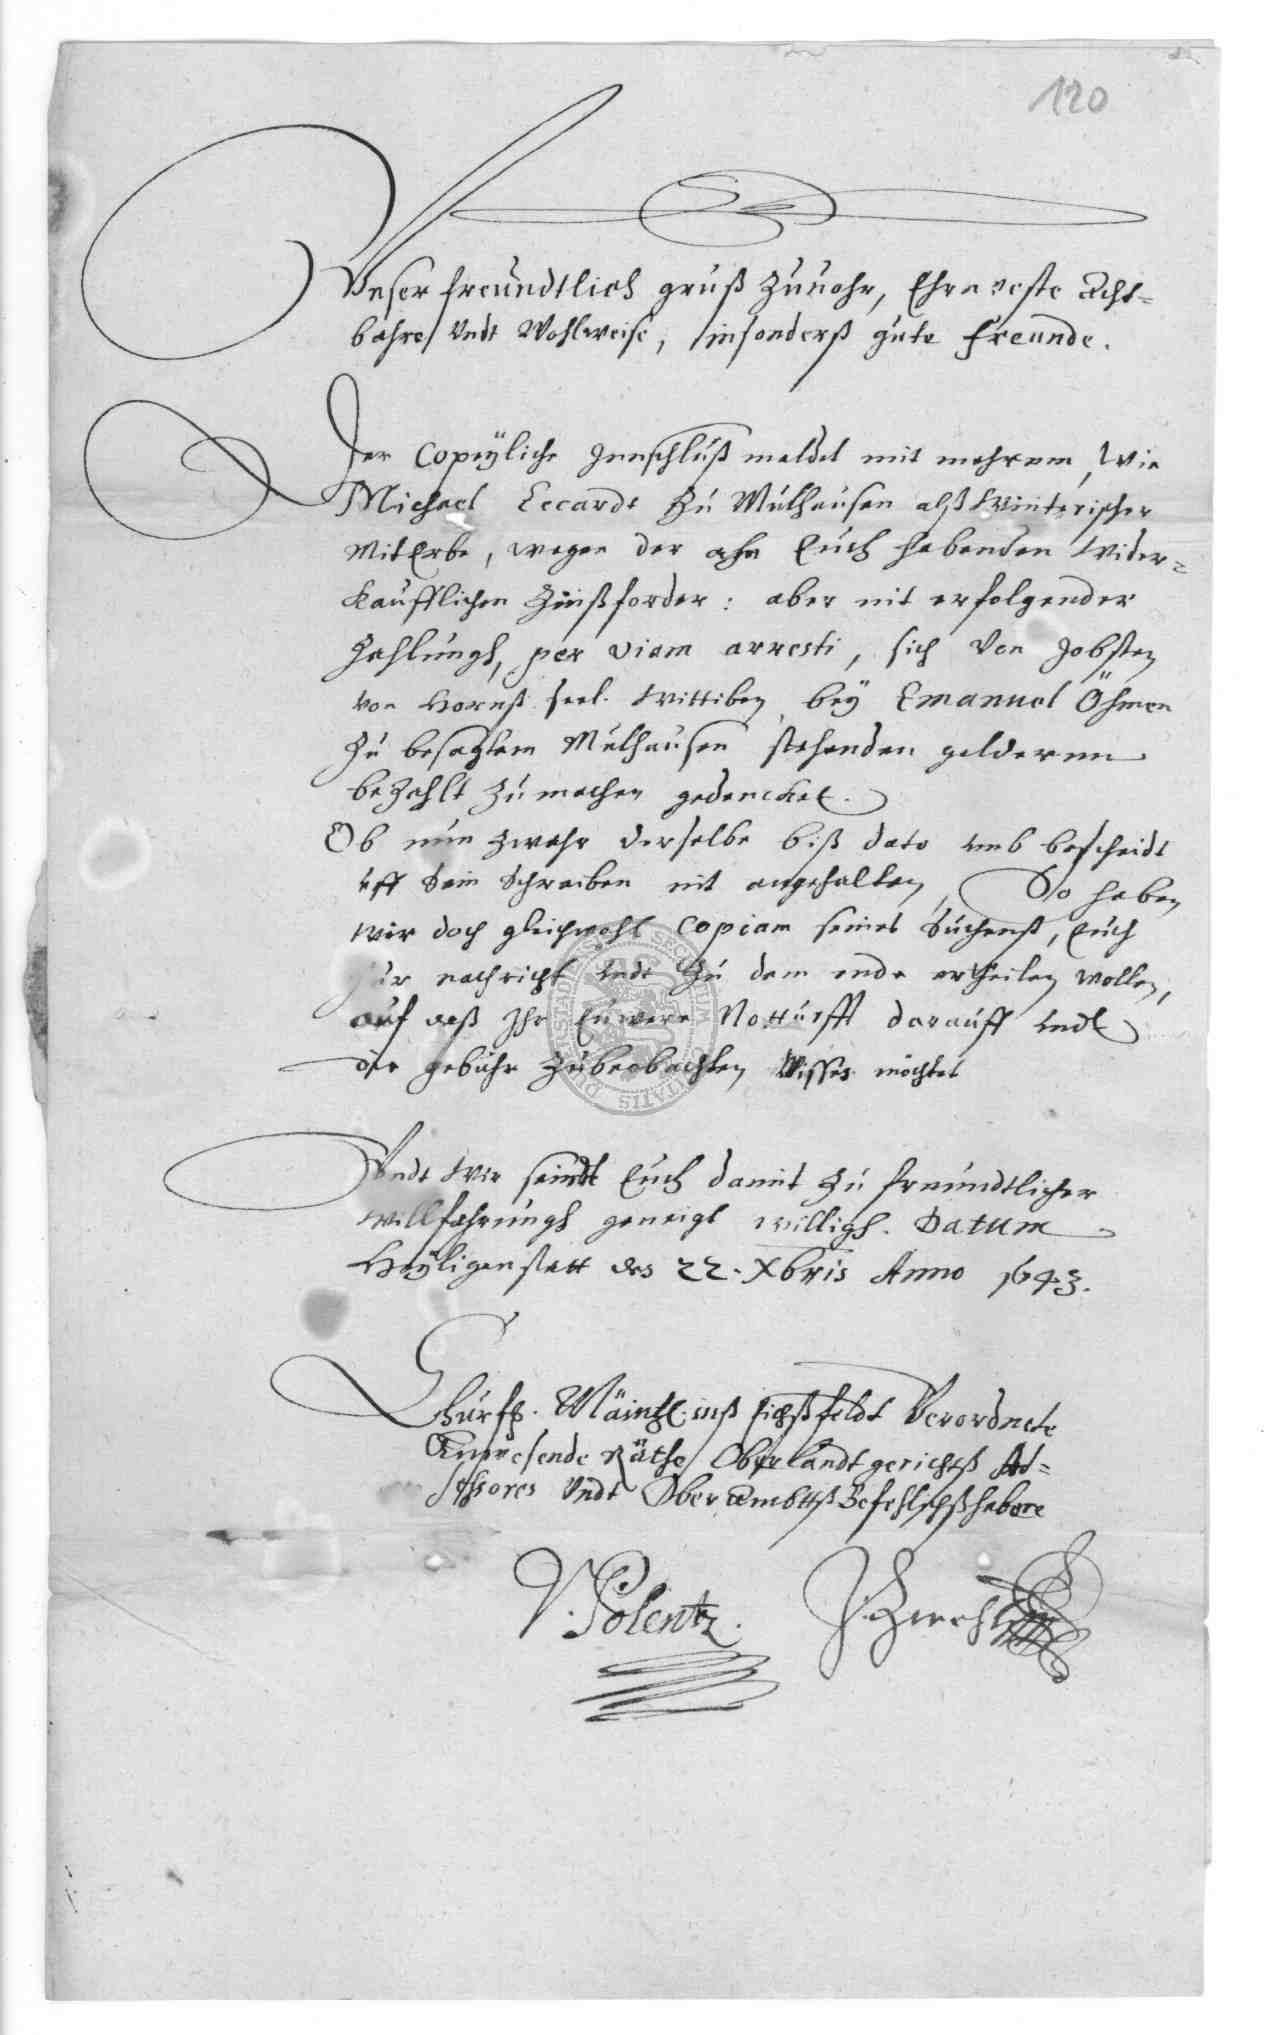 120
Vnser freundtlich gruß zuuohr, Ehrnveste Acht=
bahre Vndt Wohlweise, insonderß gute freunde.
Der Copeyliche Innschluß meldet mit mehrem, Wie
Michael Eccardt zu Mülhausen alß Winterischer
MitErbe, wegen der ahn Euch habenden Wider=
kaufflichen Zinßforder: aber nit erfolgender
Zahlungh, per viam arresti, sich von Jobsten
von Hornß seel. Wittiben bey Emanuel Öhmen
zu besagtem Mülhausen stehenden gelderen
bezahlt zu machen gedencket.
Ob nun zwahr derselbe biß dato umb bescheidt
uff Sein Schreiben nit angehalten, So haben
wir doch gleichwohl Copiam seines Suchenß, Euch
zur nachricht undt zu dem ende ertheilen wollen,
auf daß Ihr Euwere Notturfft darauff undt
die gebühr zubeobachten Wisset möchtet
Vndt Wir seindt Euch damit zu freundtlicher
willfahrungh geneigt willigh. Datum
Heyligenstatt des 22. Xbris Anno 1643.
Churf. Mäintz. inß Eichßfeldt Verordnete
Anwesende Räthe Oberlandtgerichtß As=
sessores Vndt Oberambttß Befehlchßhabere
V. Polentz.